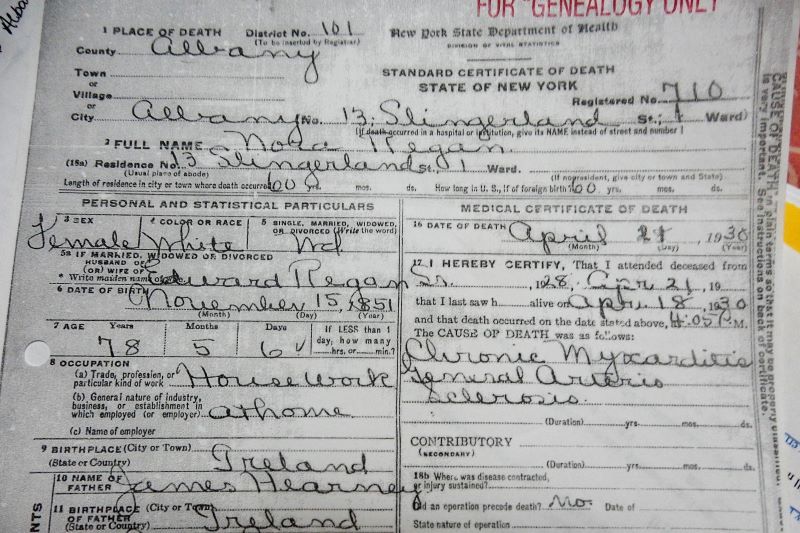 FOR "GENEALOGY ONLY"
Alba
1 PLACE OF DEATH District No. 101 New York State Department of Health
(To be inserted by Registrar) DIVISION OF VITAL STATISTICS
County Albany
Town STANDARD CERTIFICATE OF DEATH
or STATE OF NEW YORK
Village Registered No. 710
or
City Albany No. 13 Slingerland St.; 1 Ward)
(If death occurred in a hospital or institution, give its NAME instead of street and number)
2 FULL NAME Nora Regan
(18a) Residence No. 13 Slingerland St., 1 Ward.
(Usual place of abode) (If nonresident, give city or town and State)
Length of residence in city or town where death occurred 60 yrs. mos. ds. How long in U. S., if of foreign birth? 60 yrs. mos. ds.
PERSONAL AND STATISTICAL PARTICULARS
3 SEX 4 COLOR OR RACE 5 SINGLE, MARRIED, WIDOWED,
OR DIVORCED (Write the word)
Female White Wd
5a IF MARRIED, WIDOWED OR DIVORCED
HUSBAND OF
(OR) WIFE OF Edward Regan
* Write maiden name of
6 DATE OF BIRTH November 15, 1851
(Month) (Day) (Year)
7 AGE Years Months Days If LESS than 1
day, how many
78 5 6 hrs. or min.?
8 OCCUPATION
(a) Trade, profession, or
particular kind of work House Work
(b) General nature of industry,
business, or establishment in
which employed (or employer) at home
(c) Name of employer
9 BIRTHPLACE (City or Town)
(State or Country) Ireland
10 NAME OF
FATHER James Hearney
11 BIRTHPLACE (City or Town)
OF FATHER
(State or Country) Ireland
MEDICAL CERTIFICATE OF DEATH
16 DATE OF DEATH April 21, 1930
(Month) (Day) (Year)
17 I HEREBY CERTIFY, That I attended deceased from
1928, Apr 21, 19
that I last saw h alive on Apr 18, 1930
and that death occurred on the date stated above, 4:05 P.M.
The CAUSE OF DEATH was as follows:
Chronic Myocarditis
General Arterio
sclerosis.
(Duration) yrs. mos. ds.
CONTRIBUTORY
(SECONDARY)
(Duration) yrs. mos. ds.
18b Where was disease contracted,
or injury sustained?
Did an operation precede death? No. Date of
State nature of operation
CAUSE OF DEATH in plain terms so that it may be properly
is very important. See instructions on back of certificate.